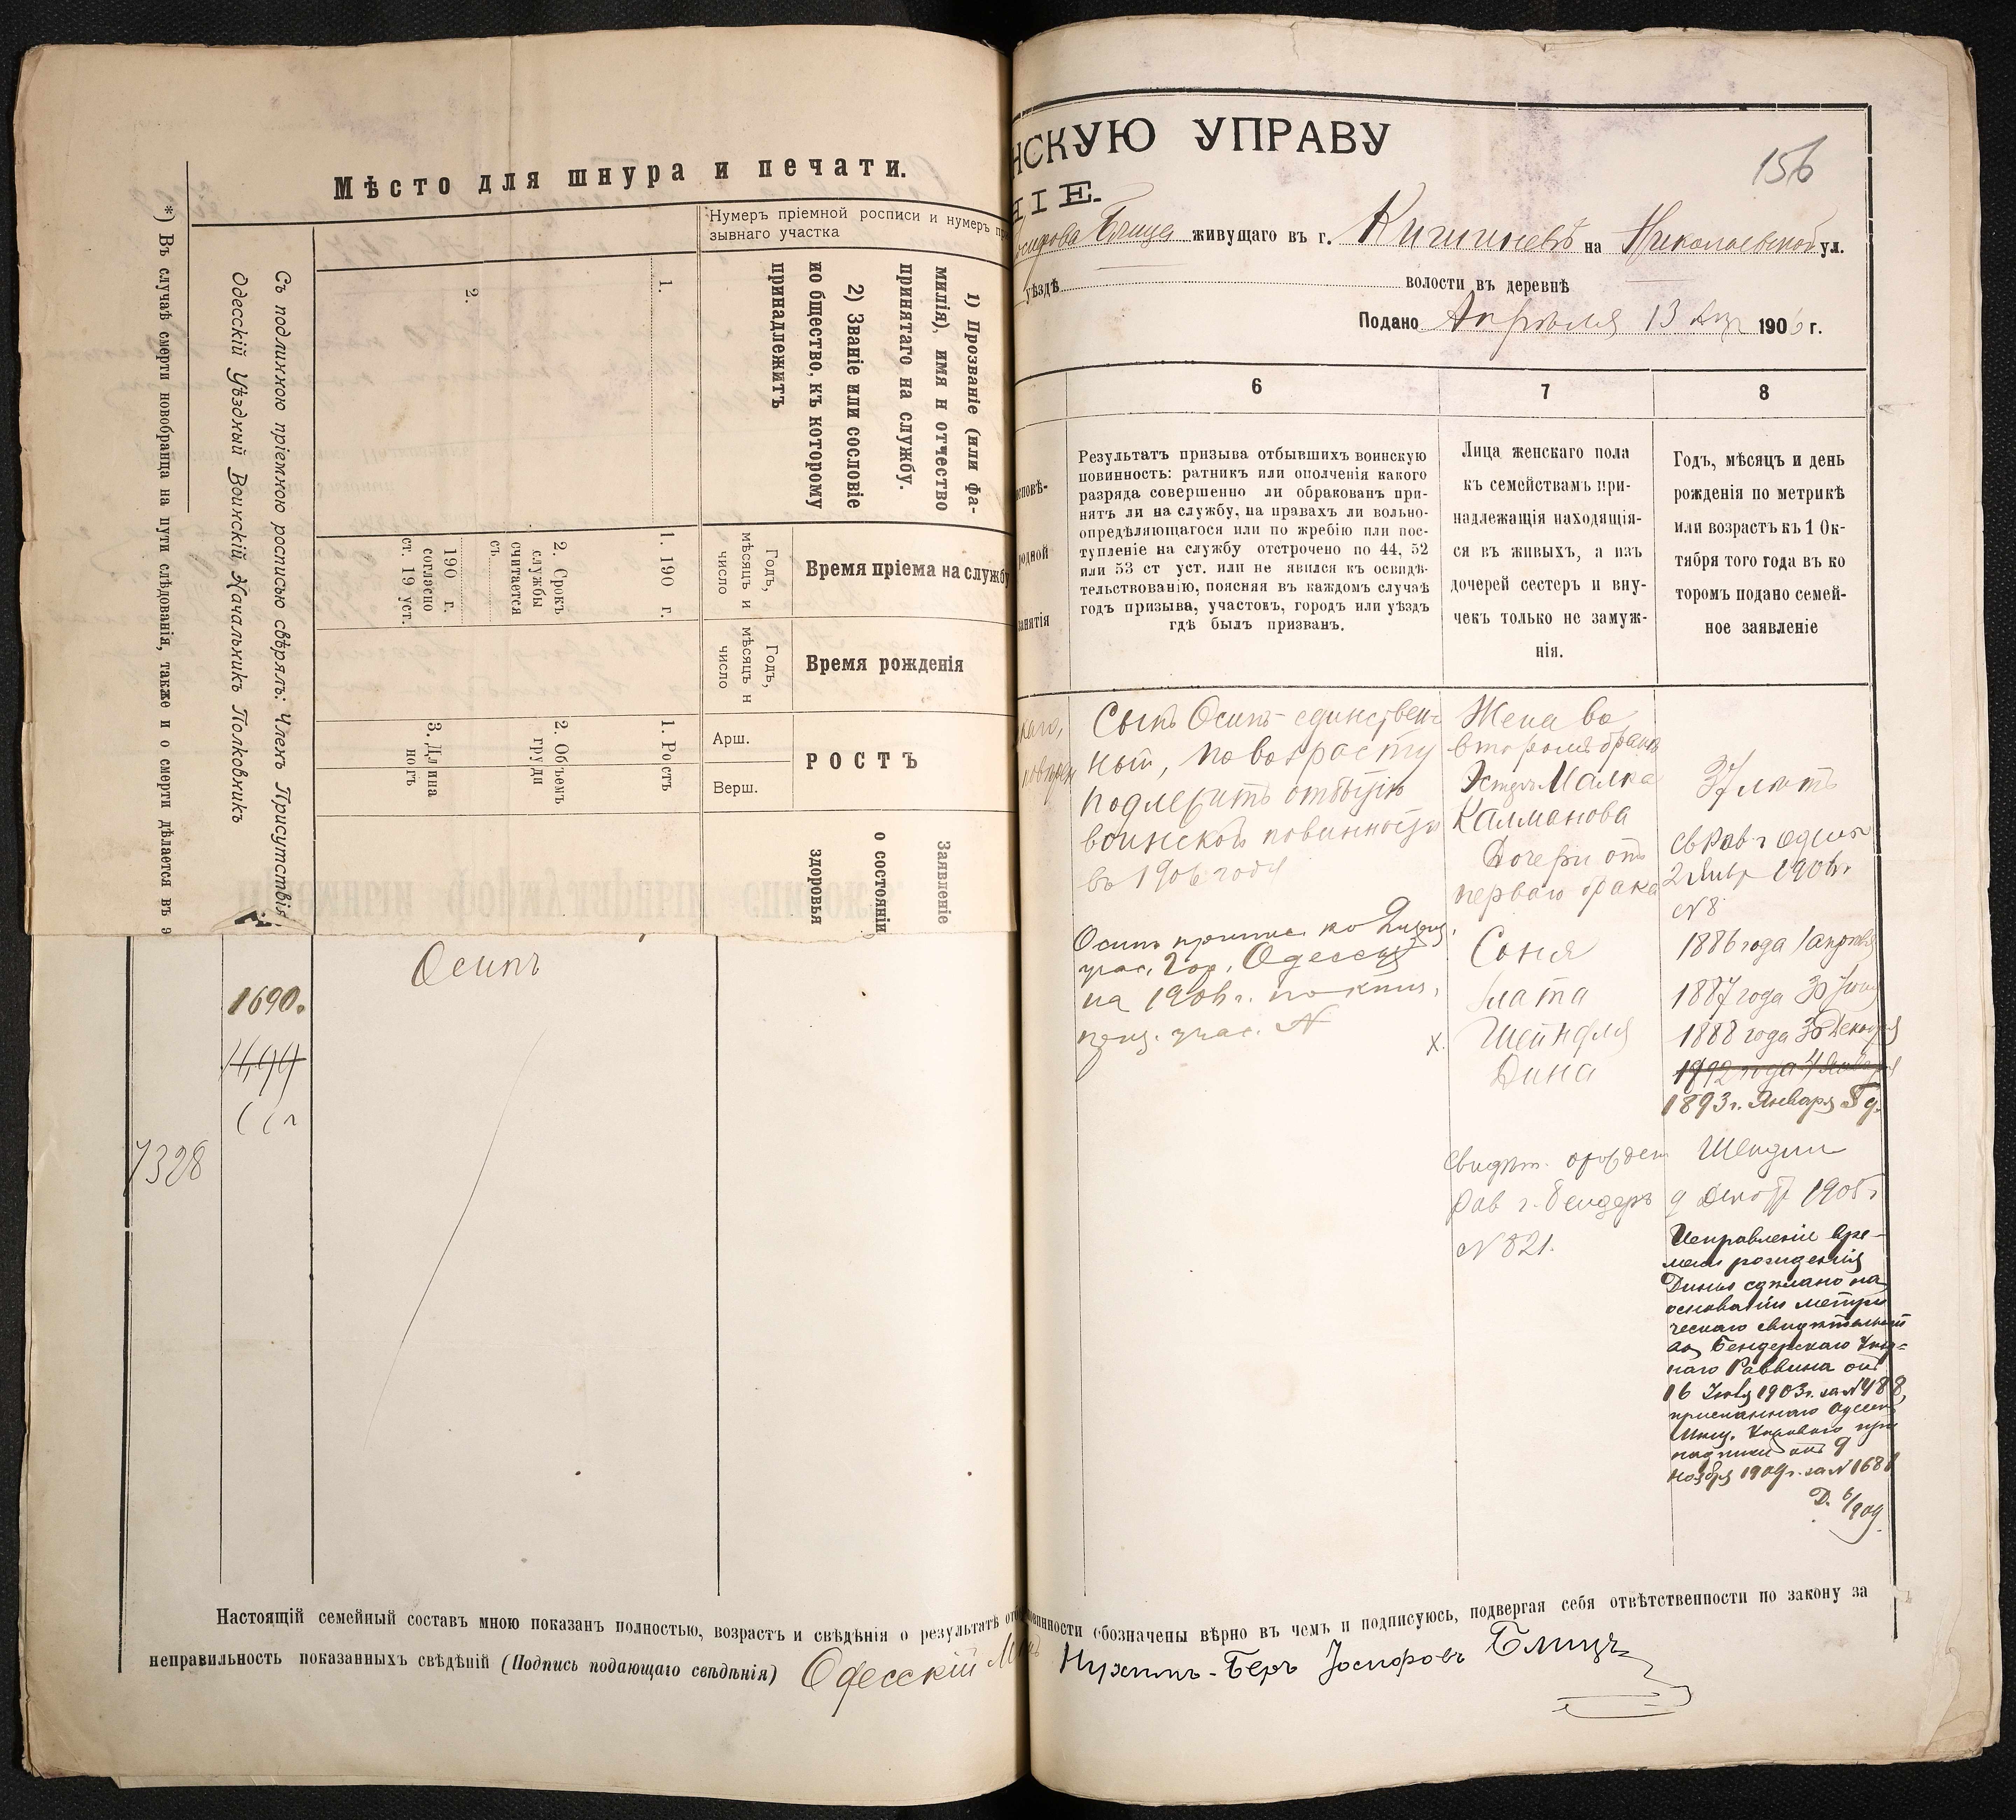 Мѣсто для шнура и печати.
*) Въ случаѣ смерти новобранца на пути слѣдованія, также и о смерти дѣлается въ э
Съ подлинною пріемною росписью свѣрялъ: Членъ Присутствія
Одесскій Уѣздный Воинскій Начальникъ Полковникъ
Нумеръ пріемной росписи и нумеръ пр
зывнаго участка
1.
2.
1) Прозваніе (или фа-
милія), имя и отчество
принятаго на службу.
2) Званіе или сословіе
ио бщество, къ которому
принадлежитъ
1. 190 г.
2. Срокъ
службы
считается
съ
190 г.
согласно
ст. 19 уст.
Годъ,
мѣсяцъ и
число
Время пріема на службу
Годъ,
мѣсяцъ и
число
Время рожденія
1. Ростъ
2. Объемъ
груди
3. Длина
ногъ
Арш.
Верш.
РОСТЪ
Заявленіе
о состояніи
здоровья
Осипъ
1690.
7328
НСКУЮ УПРАВУ
156
НІЕ.
Блица живущаго въ г. Кишиневъ на Николаевской ул.
уѣздѣ волости въ деревнѣ
Подано Апрѣля 13 дня 1906 г.
6
7
8
исповѣ-
родной
занятія
Результатъ призыва отбывшихъ воинскую
повинность: ратникъ или ополченія какого
разряда совершенно ли обракованъ при-
нятъ ли на службу, на правахъ ли вольно-
опредѣляющагося или по жребію или пос-
тупленіе на службу отстрочено по 44, 52
или 53 ст уст. или не явился къ освидѣ-
тельствованію, поясняя въ каждомъ случаѣ
годъ призыва, участокъ, городъ или уѣздъ
гдѣ былъ призванъ.
Лица женскаго пола
къ семействамъ при-
надлежащія находящія-
ся въ живыхъ, а изъ
дочерей сестеръ и вну-
чекъ только не замуж-
нія.
Годъ, мѣсяцъ и день
рожденія по метрикѣ
или возрастъ къ 1 Ок-
тября того года въ ко
торомъ подано семей-
ное заявленіе
Сынъ Осипъ единствен-
ный, по возрасту
подлежитъ отбытію
воинской повинности
въ 1906 году
Осипъ припис. ко 2 призыв.
учас. гор. Одессы
на 1906 г. по книг.
приз. учас. N
Жена во
второмъ бракѣ
Эстръ Малка
Калманова
37 лѣтъ
Дочери отъ
перваго брака
св Рав г Одессы
2 Янв 1906 г.
N 8
Соня
1886 года 1 апрѣля
Злата
1887 года 30 Іюня
х. Шейндля
1888 года 30 Декабря
Дина
1892 года 4 Января
1893 г. Января 8 д.
Свидѣт. о рожден Шендли
Рав г. Бендеръ 9 Декаб 1905 г
N 821.
Исправленіе вре-
мени рожденія
Дины сдѣлано на
основаніи метри
ческаго свидѣтельст
ва Бендерскаго Уѣзд-
наго Раввина отъ
16 Іюля 1903 г. за N 488,
присланнаго Одесск
Мѣщ. Управою при
надписи отъ 9
ноября 1909 г. за N 1681
Д. 6/909
Настоящій семейный составъ мною показанъ полностью, возрастъ и свѣдѣнія о результатѣ отб винности обозначены вѣрно въ чемъ и подписуюсь, подвергая себя отвѣтственности по закону за
неправильность показанныхъ свѣдѣній (Подпись подающаго свѣдѣнія) Одесскій Мѣщ Нухимъ-Беръ Іосифовъ Блицъ